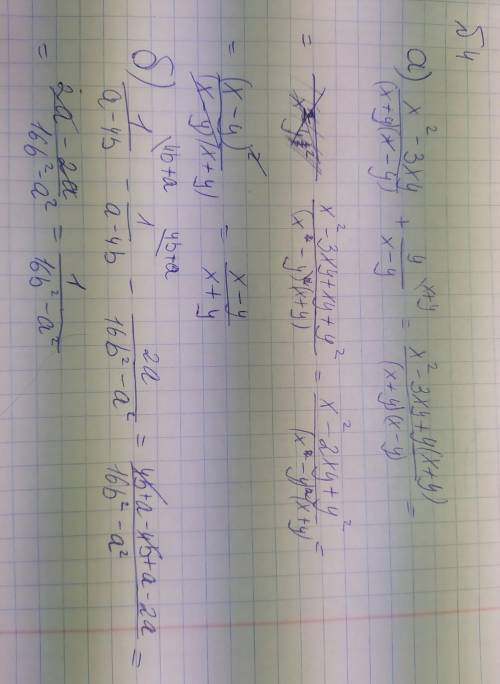 №4
а) (x² - 3xy)/((x+y)(x-y)) + y/(x-y) \x+y = (x² - 3xy + y(x+y))/((x+y)(x-y)) =
= (x² - 3xy + xy + y²)/((x - y)(x+y)) = (x² - 2xy + y²)/((x - y)(x+y)) =
= (x-y)²/((x-y)(x+y)) = (x-y)/(x+y)
б) 1/(a-4b) \4b+a - 1/(a-4b) \4b+a - 2a/(16b² - a²) = (4b+a-4b+a-2a)/(16b² - a²) =
= (2a - 2a)/(16b² - a²) = 1/(16b² - a²)